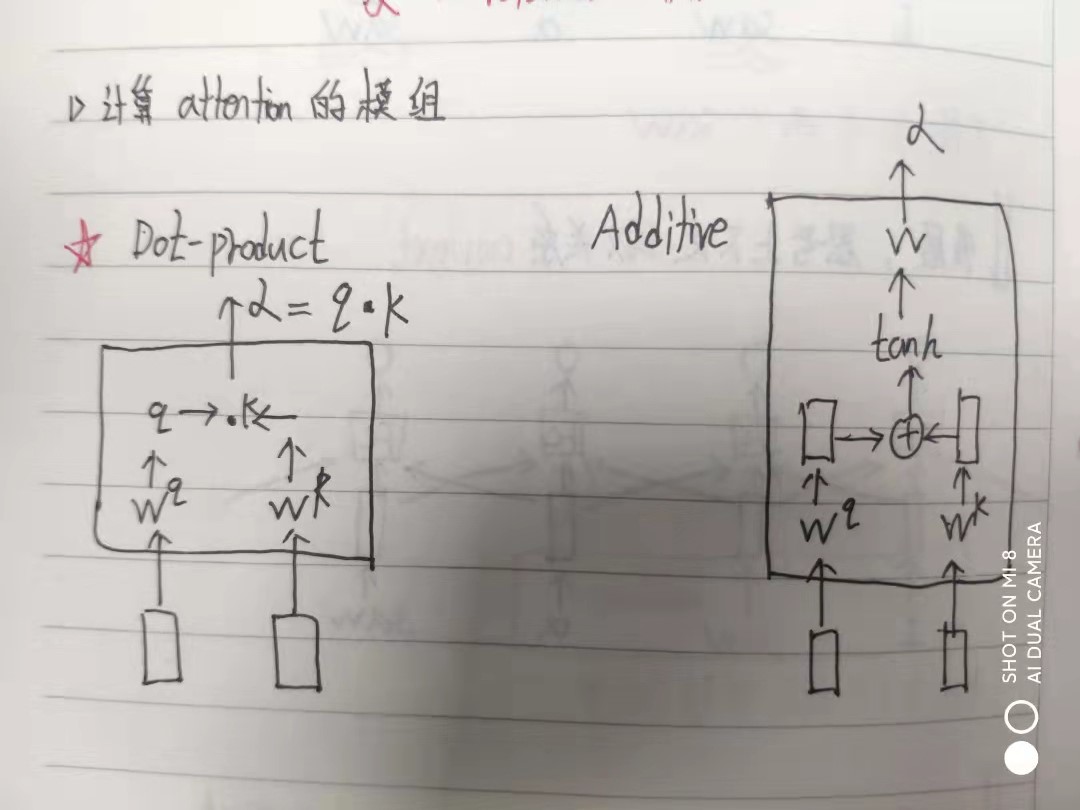 1> 计算 attention 的模组
☆ Dot-product
α = q · k
q → . k ←
W^q W^k
Additive
α
W
tanh
+
W^q W^k
SHOT ON MI 8
AI DUAL CAMERA